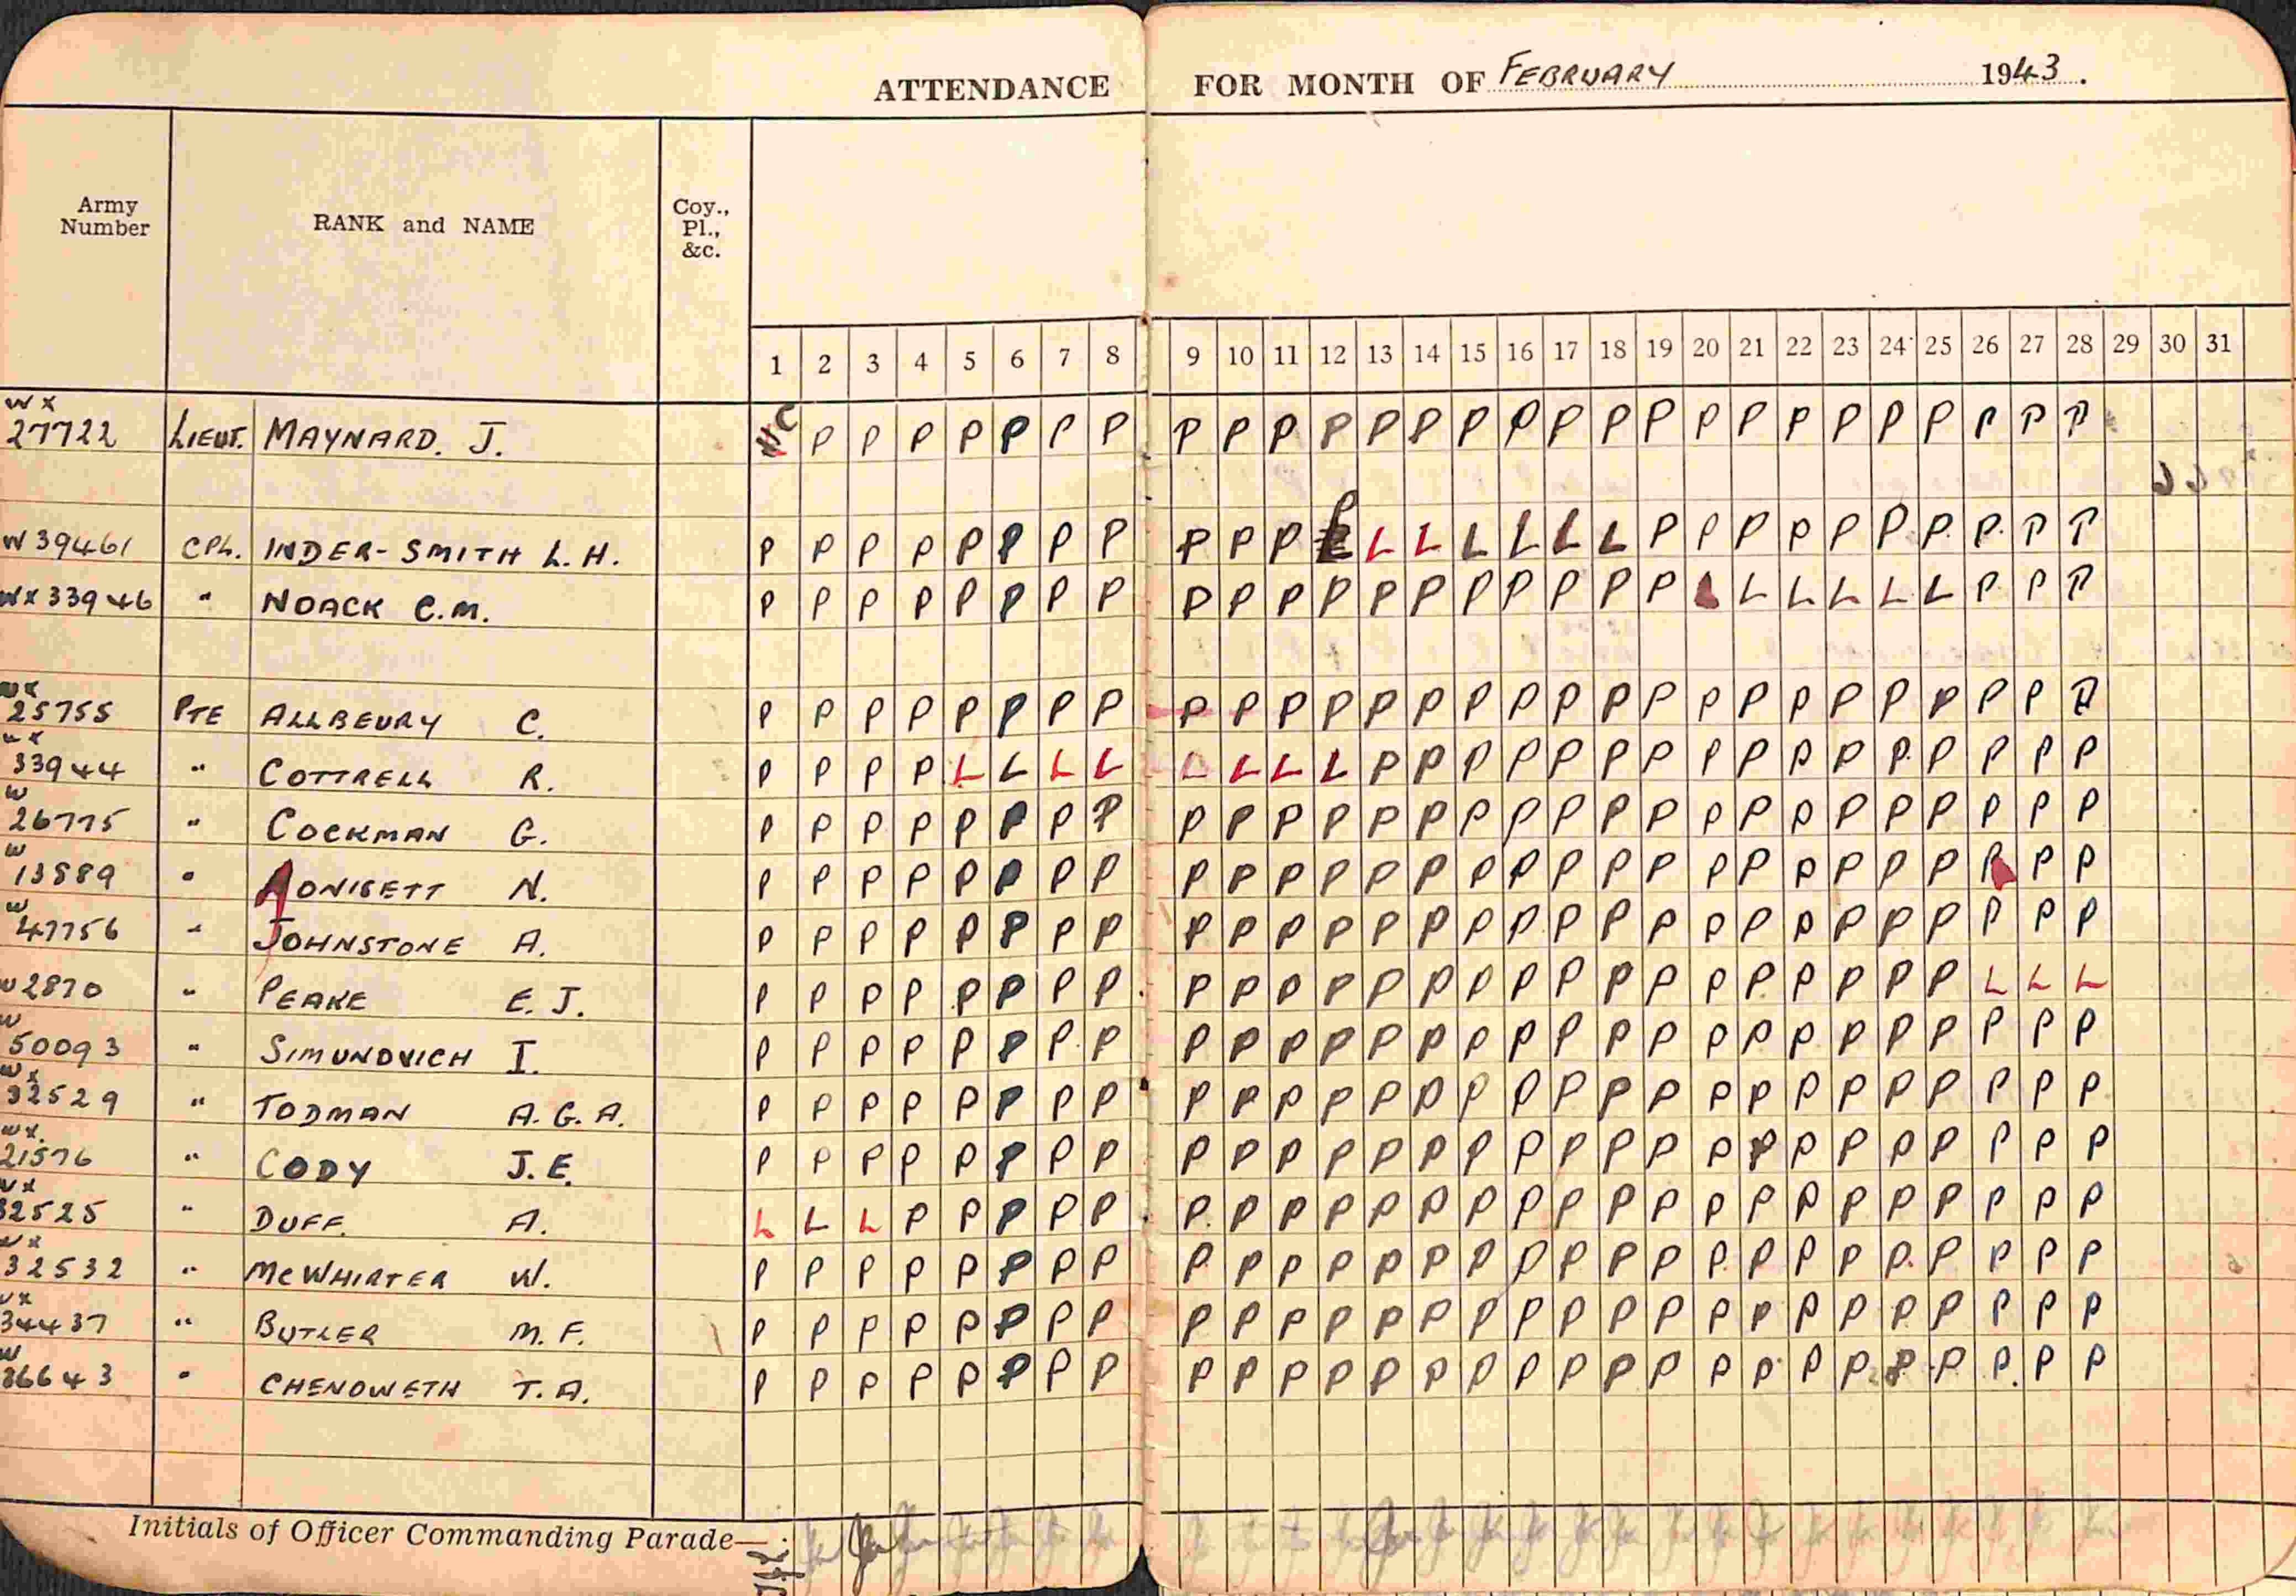 ATTENDANCE FOR MONTH OF FEBRUARY 1943.
Army Number RANK and NAME Coy., Pl., &c.
1 2 3 4 5 6 7 8 9 10 11 12 13 14 15 16 17 18 19 20 21 22 23 24 25 26 27 28 29 30 31
WX 27722 LIEUT. MAYNARD. J. P P P P P P P P P P P P P P P P P P P P P P P P P P P
W 39461 CPL. INDER-SMITH L.H. P P P P P P P P P P P P L L L L L L P P P P P P P P P P
WX 33946 " NOACK C.M. P P P P P P P P P P P P P P P P P P P L L L L L P P P
WX 25755 PTE ALLBEURY C. P P P P P P P P P P P P P P P P P P P P P P P P P P P P
WX 33944 " COTTRELL R. P P P P L L L L L L L L P P P P P P P P P P P P P P P P
W 26775 " COCKMAN G. P P P P P P P P P P P P P P P P P P P P P P P P P P P P
W 13889 " N. P P P P P P P P P P P P P P P P P P P P P P P P P P P P
W 47756 " JOHNSTONE A. P P P P P P P P P P P P P P P P P P P P P P P P P P P P
W 2870 " PEAKE E.J. P P P P P P P P P P P P P P P P P P P P P P P P P L L L
W 50093 " SIMUNOVICH I. P P P P P P P P P P P P P P P P P P P P P P P P P P P P
WX 32529 " TODMAN A.G.A. P P P P P P P P P P P P P P P P P P P P P P P P P P P P
WX. 21576 " CODY J.E. P P P P P P P P P P P P P P P P P P P P P P P P P P P P
WX 32525 " DUFF. A. L L L P P P P P P P P P P P P P P P P P P P P P P P P P
WX 32532 " McWHIRTER W. P P P P P P P P P P P P P P P P P P P P P P P P P P P P
WX 34437 " BUTLER M.F. P P P P P P P P P P P P P P P P P P P P P P P P P P P P
W 36643 " CHENOWETH T.A. P P P P P P P P P P P P P P P P P P P P P P P P P P P P
Initials of Officer Commanding Parade—